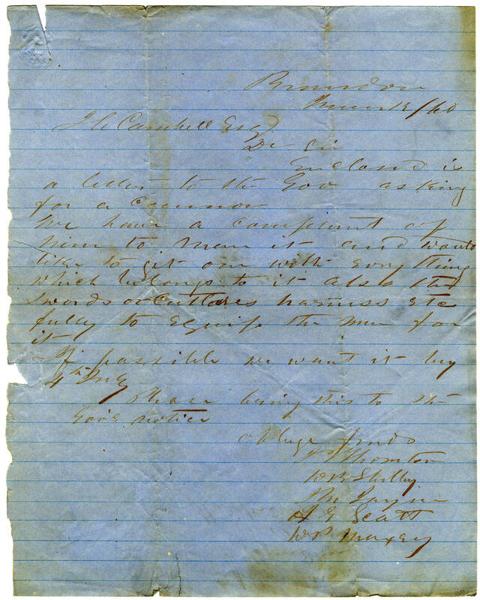 Brandon
/60
J A Campbell Esq
Dr Sir
Enclosed is
a letter to the Gov asking
for a Cannon
We have a compliment of
men to man it and would
like to git one with every thing
which belongs to it also the
swords or cutlasses harness etc
fully to equip the men for
it
If possible we want it by
4th
Please bring this to the
Gov's notice
Oblige friends
Thornton
W B Shelby
Wm
A J Scott
W P Maxey